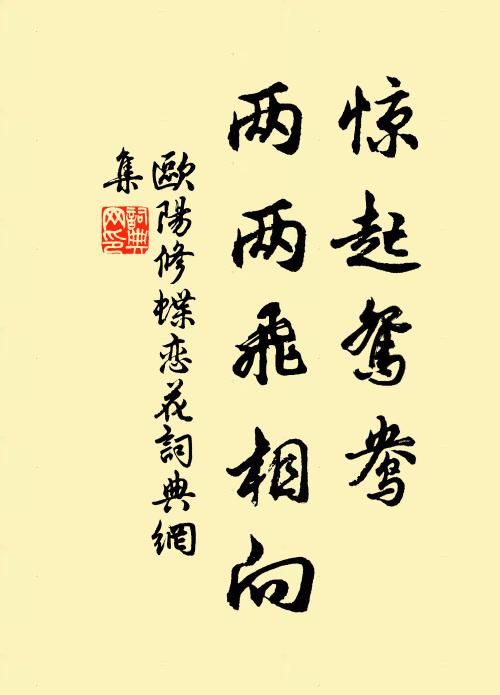 惊起鸳鸯
两两飞相向
歐陽修蝶恋花詞典網
集
詞典
网印